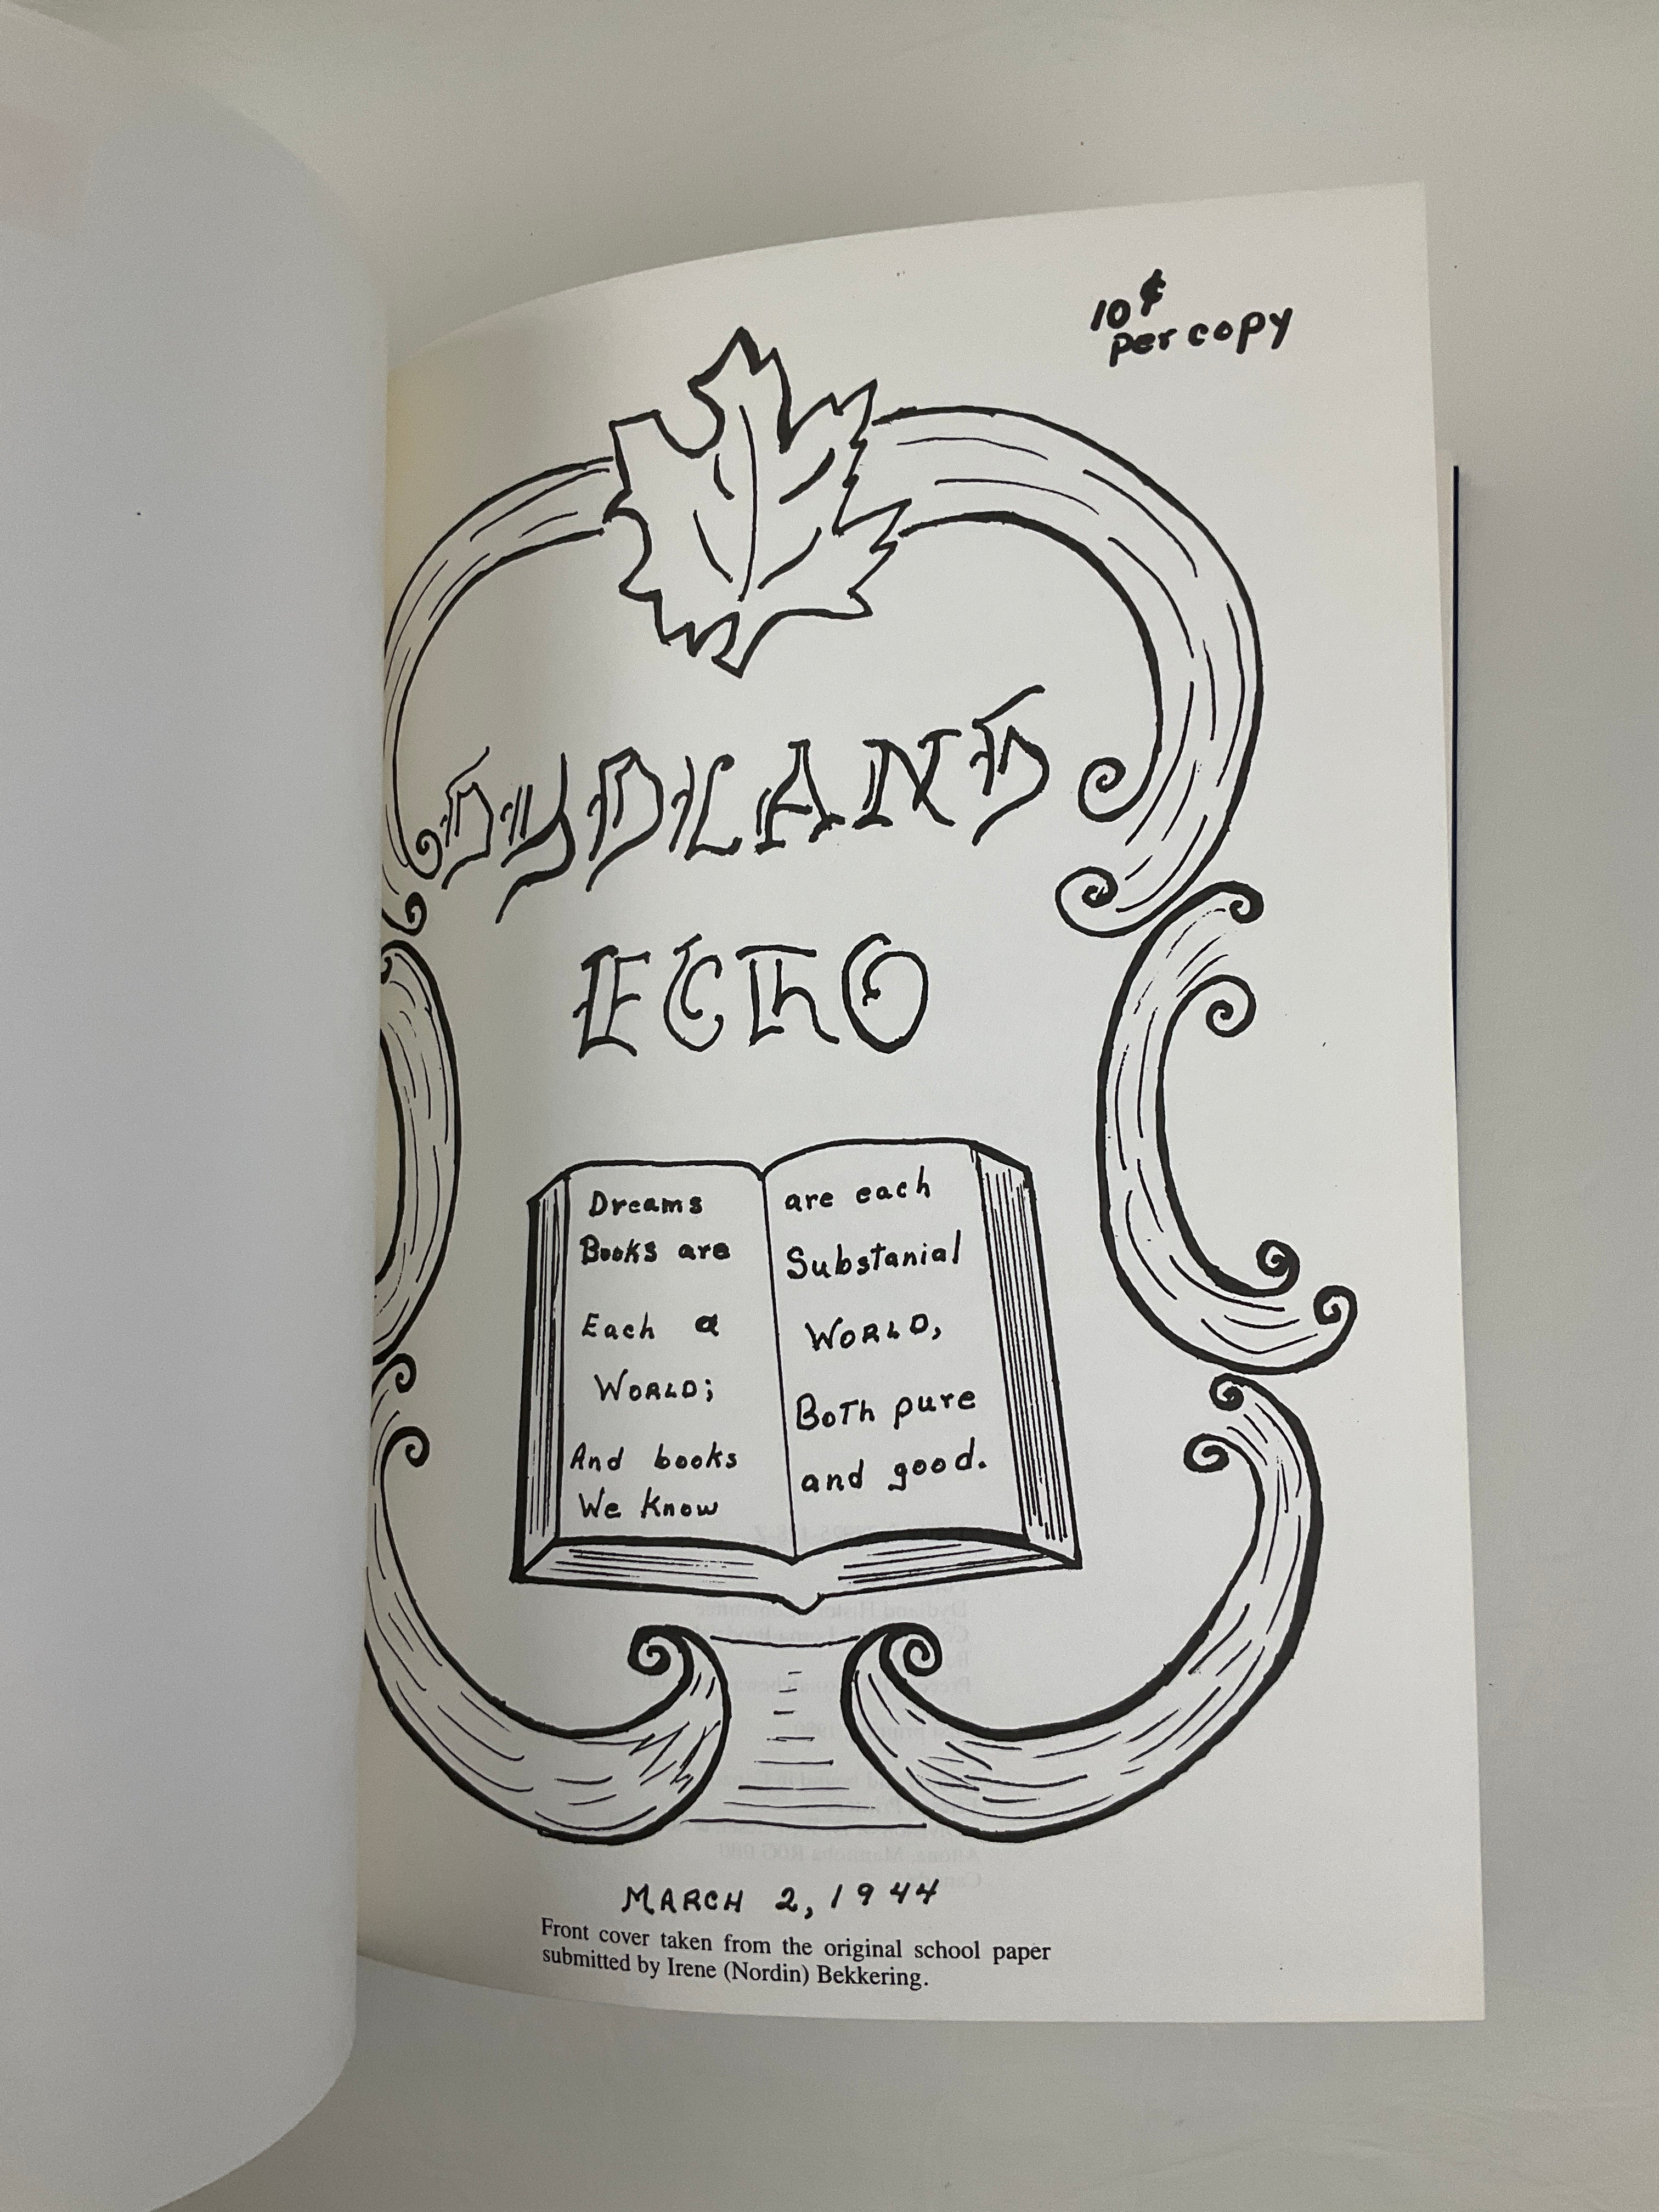 10¢
per copy
DYDLAND
ECHO
Dreams
Books are
Each a
WORLD;
And books
We know
are each
Substanial
WORLD,
BoTh pure
and good.
MARCH 2, 1944
Front cover taken from the original school paper
submitted by Irene (Nordin) Bekkering.